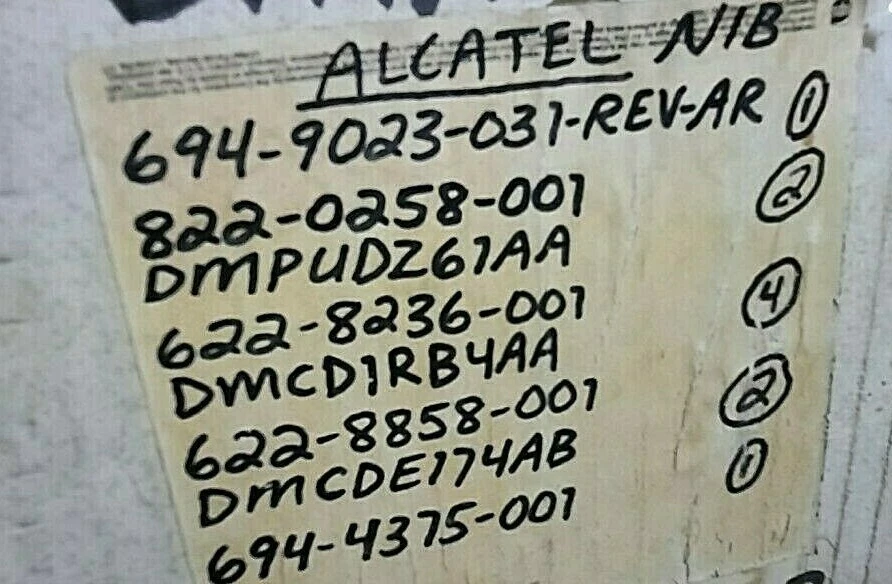 ALCATEL NIB
694-9023-031-REV-AR 1
822-0258-001 2
DMPUDZ61AA
622-8236-001 4
DMCD1RB4AA
622-8858-001 2
DMCDE174AB 1
694-4375-001